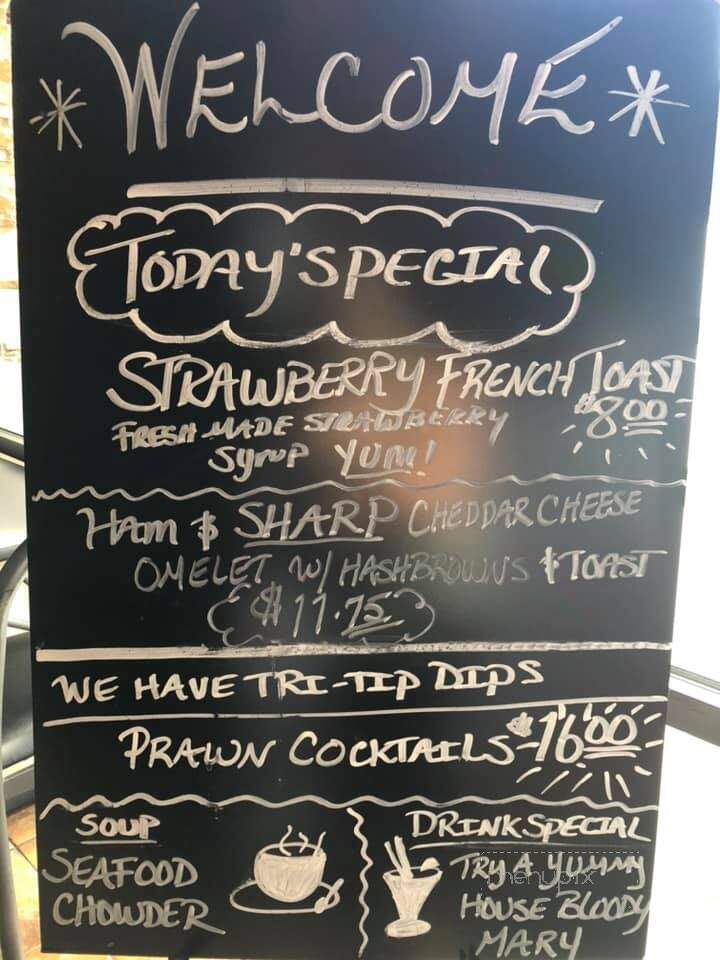 *WELCOME*
TODAY'S SPECIAL
STRAWBERRY FRENCH TOAST
$8.00
FRESH MADE STRAWBERRY
SYRUP YUM!
HAM & SHARP CHEDDAR CHEESE
OMELET W/ HASHBROWNS & TOAST
$11.75
WE HAVE TRI-TIP DIPS
PRAWN COCKTAILS-$16.00
SOUP
SEAFOOD
CHOWDER
DRINK SPECIAL
TRY A YUMMY
HOUSE BLOODY
MARY
menupix